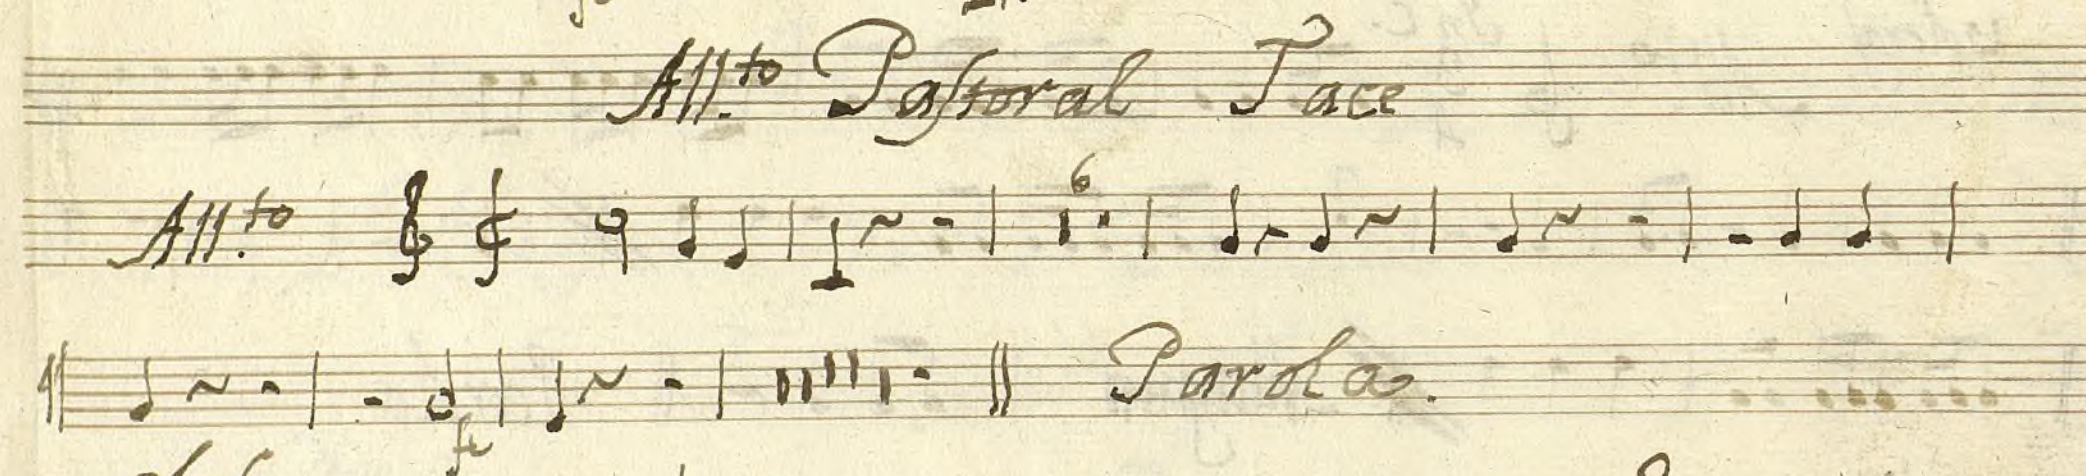 All.to Pastoral Tace
All.to 6
fe
Parola.